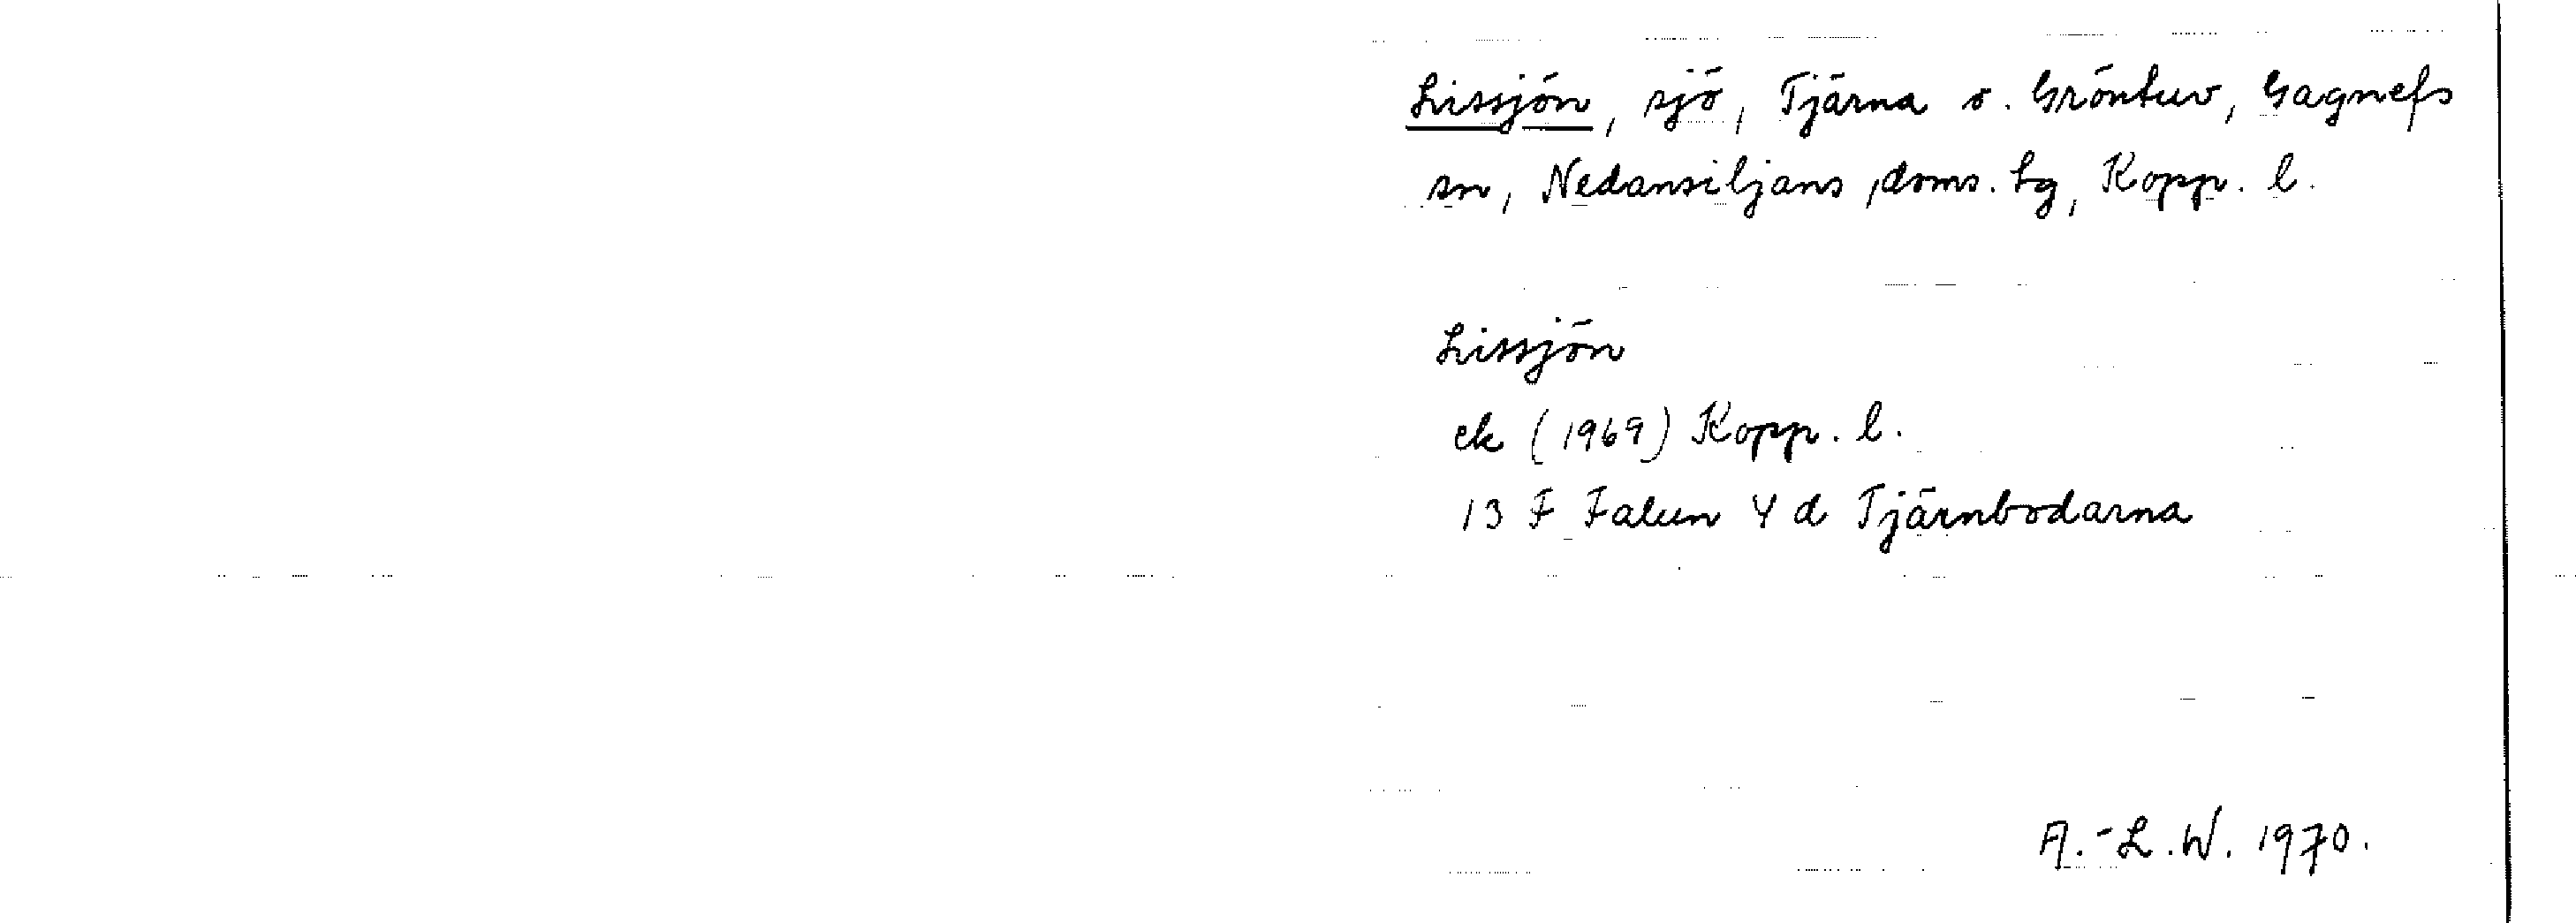 Lissjön, sjö, Tjärna o. Gröntuv, Gagnefs
sn, Nedansiljans doms. tg, Kopp. l.
Lissjön
ek (1969) Kopp. l.
13 F Falun 4 d Tjärnbodarna
A.-L.W. 1970.